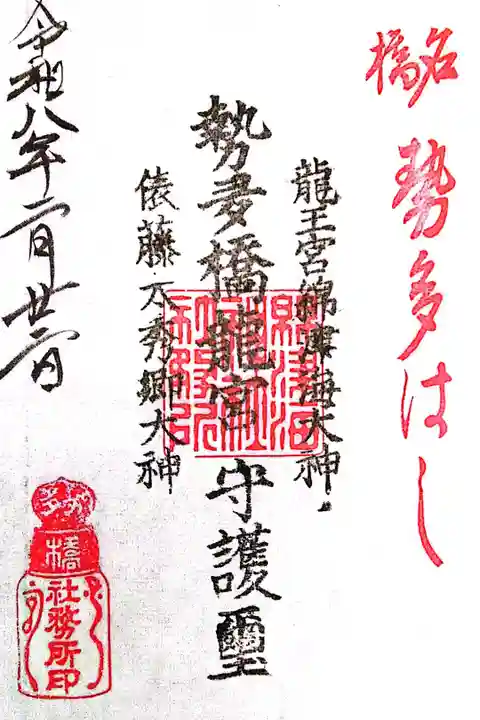 名橋
勢多はし
龍王宮綿津海大神
勢多橋龍宮守護璽
俵藤太秀郷大神
令和八年二月廿二日
橋
社務所印